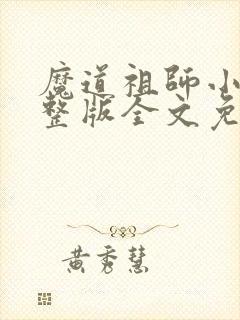 魔道祖師小
整版全文免
黄秀慧